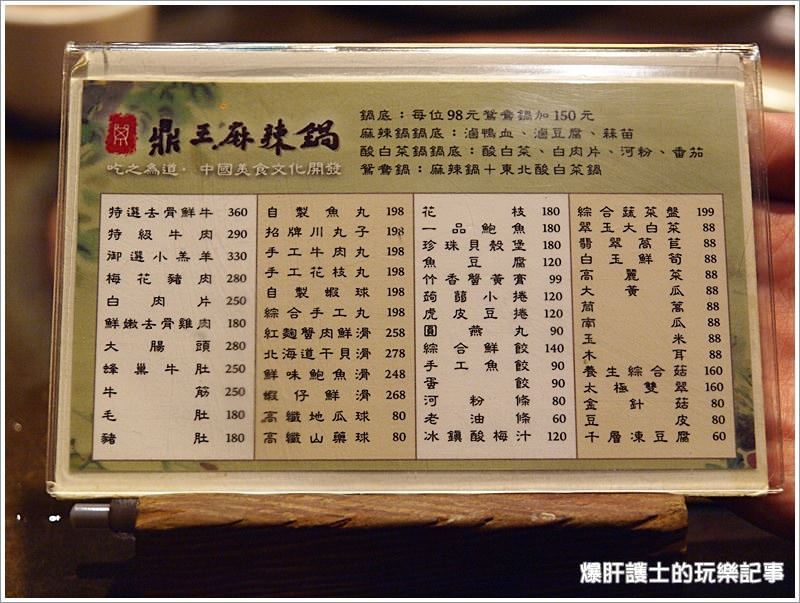 鼎王麻辣鍋
吃之為道．中國美食文化開發
鍋底：每位98元鴛鴦鍋加150元
麻辣鍋鍋底：滷鴨血、滷豆腐、蒜苗
酸白菜鍋鍋底：酸白菜、白肉片、河粉、番茄
鴛鴦鍋：麻辣鍋＋東北酸白菜鍋
特選去骨鮮牛 360
特級牛肉 290
御選小羔羊 330
梅花豬肉 280
白肉片 250
鮮嫩去骨雞肉 180
大腸頭 280
蜂巢牛肚 250
牛筋 250
毛肚 180
豬肚 180
自製魚丸 198
招牌川丸子 198
手工牛肉丸 198
手工花枝丸 198
自製蝦球 198
綜合手工丸 198
紅麴蟹肉鮮滑 258
北海道干貝滑 278
鮮味鮑魚滑 248
蝦仔鮮滑 268
高纖地瓜球 80
高纖山藥球 80
花枝 180
一品鮑魚 180
珍珠貝殼堡 180
魚豆腐 120
竹香蟹黃膏 99
蒟蒻小捲 120
虎皮豆捲 120
圓燕丸 90
綜合鮮餃 140
手工魚餃 90
蛋餃 90
河粉條 80
老油條 60
冰鎮酸梅汁 120
綜合蔬菜盤 199
翠玉大白菜 88
翡翠萵苣 88
白玉鮮筍 88
高麗菜 88
大黃瓜 88
茼蒿 88
南瓜 88
玉米 88
木耳 88
養生綜合菇 160
太極雙翠 160
金針菇 80
豆皮 80
千層凍豆腐 60
爆肝護士的玩樂記事